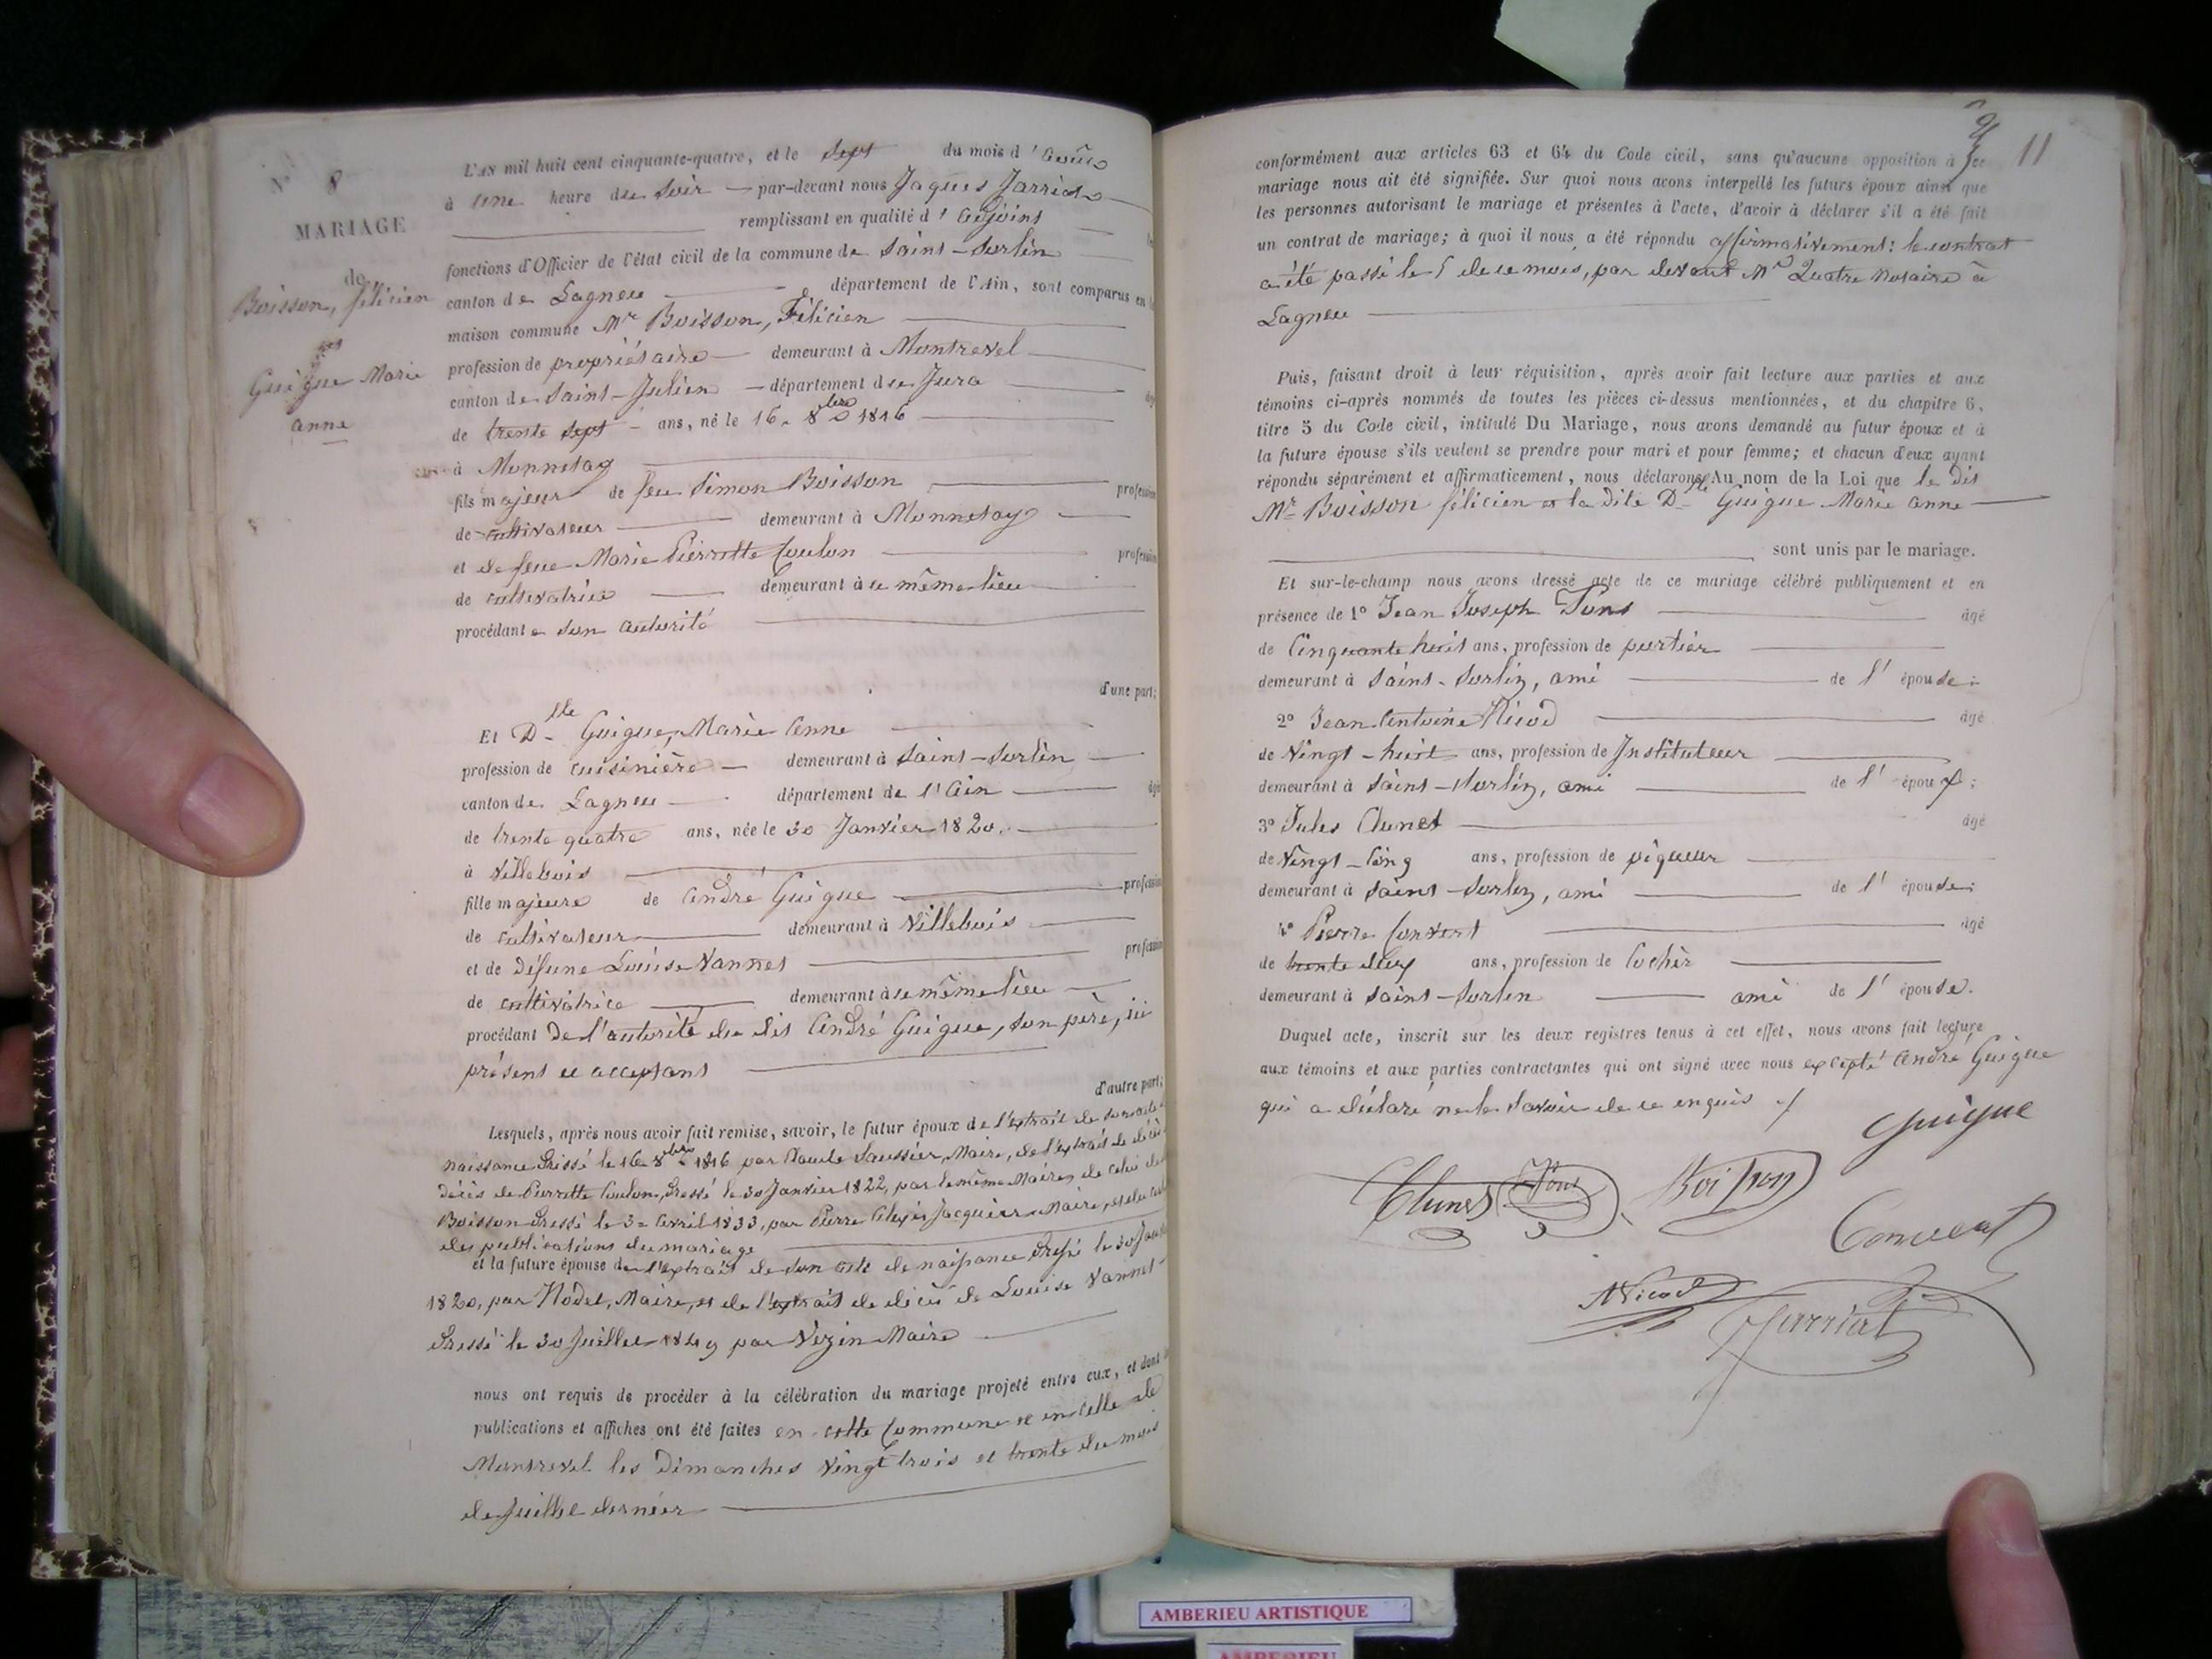 N° 8
MARIAGE
de
Boisson, félicien
et
Guigue Marie
anne
L'AN mil huit cent cinquante-quatre, et le Sept du mois d'Août
à Une heure du Soir — par-devant nous Jaques Jarriat
remplissant en qualité d'adjoint
fonctions d'Officier de l'état civil de la commune de Saint-Sorlin
canton de Lagneu département de l'Ain, sont comparus en
maison commune Mr Boisson, Félicien
profession de propriétaire demeurant à Montrevel
canton de Saint-Julien département du Jura
de trente sept ans, né le 16 8bre 1816
à Monnetay
fils majeur de feu Simon Boisson profession
de cultivateur demeurant à Monnetay
et de feue Marie Pierrette Coulon profession
de cultivatrice demeurant à ce même lieu
procédant de son autorité
d'une part;
Et Dlle Guigue, Marie Anne
profession de cuisinière demeurant à Saint-Sorlin
canton de Lagneu département de l'Ain âgé
de trente quatre ans, née le 30 Janvier 1820.
à Villebois
fille majeure de André Guigue profession
de cultivateur demeurant à Villebois
et de défune Louise Vannet profession
de cultivatrice demeurant à ce même lieu
procédant De l'autorité du dit André Guigue, son père, ici
présent et acceptant
d'autre part;
Lesquels, après nous avoir fait remise, savoir, le futur époux de l'extrait de son acte de
naissance Dressé le 16 8bre 1816 par Claude Saussier, Maire, de l'extrait de décès
décès de Pierrette Coulon, Dressé le 30 Janvier 1822, par le même Maire, de celui de
Boisson Dressé le 3 Avril 1833, par Pierre Alexis Jacquier Maire, et du
des publications du mariage
et la future épouse de l'extrait de son acte de naissance Dressé le 30 Janvier
1820, par Nodet, Maire, et de l'extrait de décès de Louise Vannet
Dressé le 30 Juillet 1849 par Vezin Maire
nous ont requis de procéder à la célébration du mariage projeté entre eux, et dont
publications et affiches ont été faites en cette Commune et en celle de
Montrevel les Dimanches Vingt trois et trente du mois
de Juillet dernier
11
conformément aux articles 63 et 64 du Code civil, sans qu'aucune opposition à ce
mariage nous ait été signifiée. Sur quoi nous avons interpellé les futurs époux ainsi que
les personnes autorisant le mariage et présentes à l'acte, d'avoir à déclarer s'il a été fait
un contrat de mariage; à quoi il nous a été répondu affirmativement: le contrat
a été passé le 5 de ce mois, par devant Me Quatre Notaire à
Lagneu
Puis, faisant droit à leur réquisition, après avoir fait lecture aux parties et aux
témoins ci-après nommés de toutes les pièces ci-dessus mentionnées, et du chapitre 6,
titre 5 du Code civil, intitulé Du Mariage, nous avons demandé au futur époux et à
la future épouse s'ils veulent se prendre pour mari et pour femme; et chacun d'eux ayant
répondu séparément et affirmativement, nous déclarons Au nom de la Loi que le dit
Mr Boisson félicien et la dite Dlle Guigue Marie Anne
sont unis par le mariage.
Et sur-le-champ nous avons dressé acte de ce mariage célébré publiquement et en
présence de 1° Jean Joseph Pons âgé
de Cinquante huit ans, profession de portier
demeurant à Saint-Sorlin, ami de l'épouse;
2° Jean Antoine Nicod âgé
de Vingt-huit ans, profession de Instituteur
demeurant à Saint-Sorlin, ami de l'époux;
3° Jules Clunet âgé
de Vingt-Cinq ans, profession de piqueur
demeurant à Saint-Sorlin, ami de l'épouse;
4° Pierre Convert âgé
de trente deux ans, profession de Cocher
demeurant à Saint-Sorlin ami de l'épouse.
Duquel acte, inscrit sur les deux registres tenus à cet effet, nous avons fait lecture
aux témoins et aux parties contractantes qui ont signé avec nous excepté André Guigue
qui a déclaré ne le savoir de ce enquis
Guigue
Clunet Pons Boisson
Convert
Nicod
Jarriat
AMBERIEU ARTISTIQUE
AMBERIEU